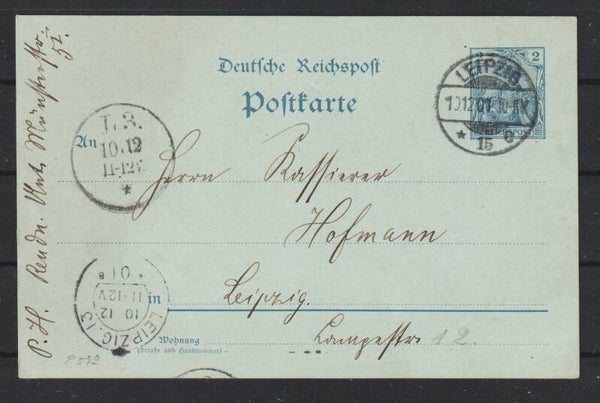 Deutsche Reichspost
Postkarte
2
LEIPZIG
10.12.01. 10-11V.
* 15 c
REICHSPOST
I. 3.
10.12
11-12V.
*
An Herrn Kassierer
Hofmann
in Leipzig.
Wohnung Lampestr. 12
(Straße und Hausnummer)
LEIPZIG.13
10 12
11-12V
* 01 *
P. H. Rendn. Amt, Münsterstr.
5I.
P 59